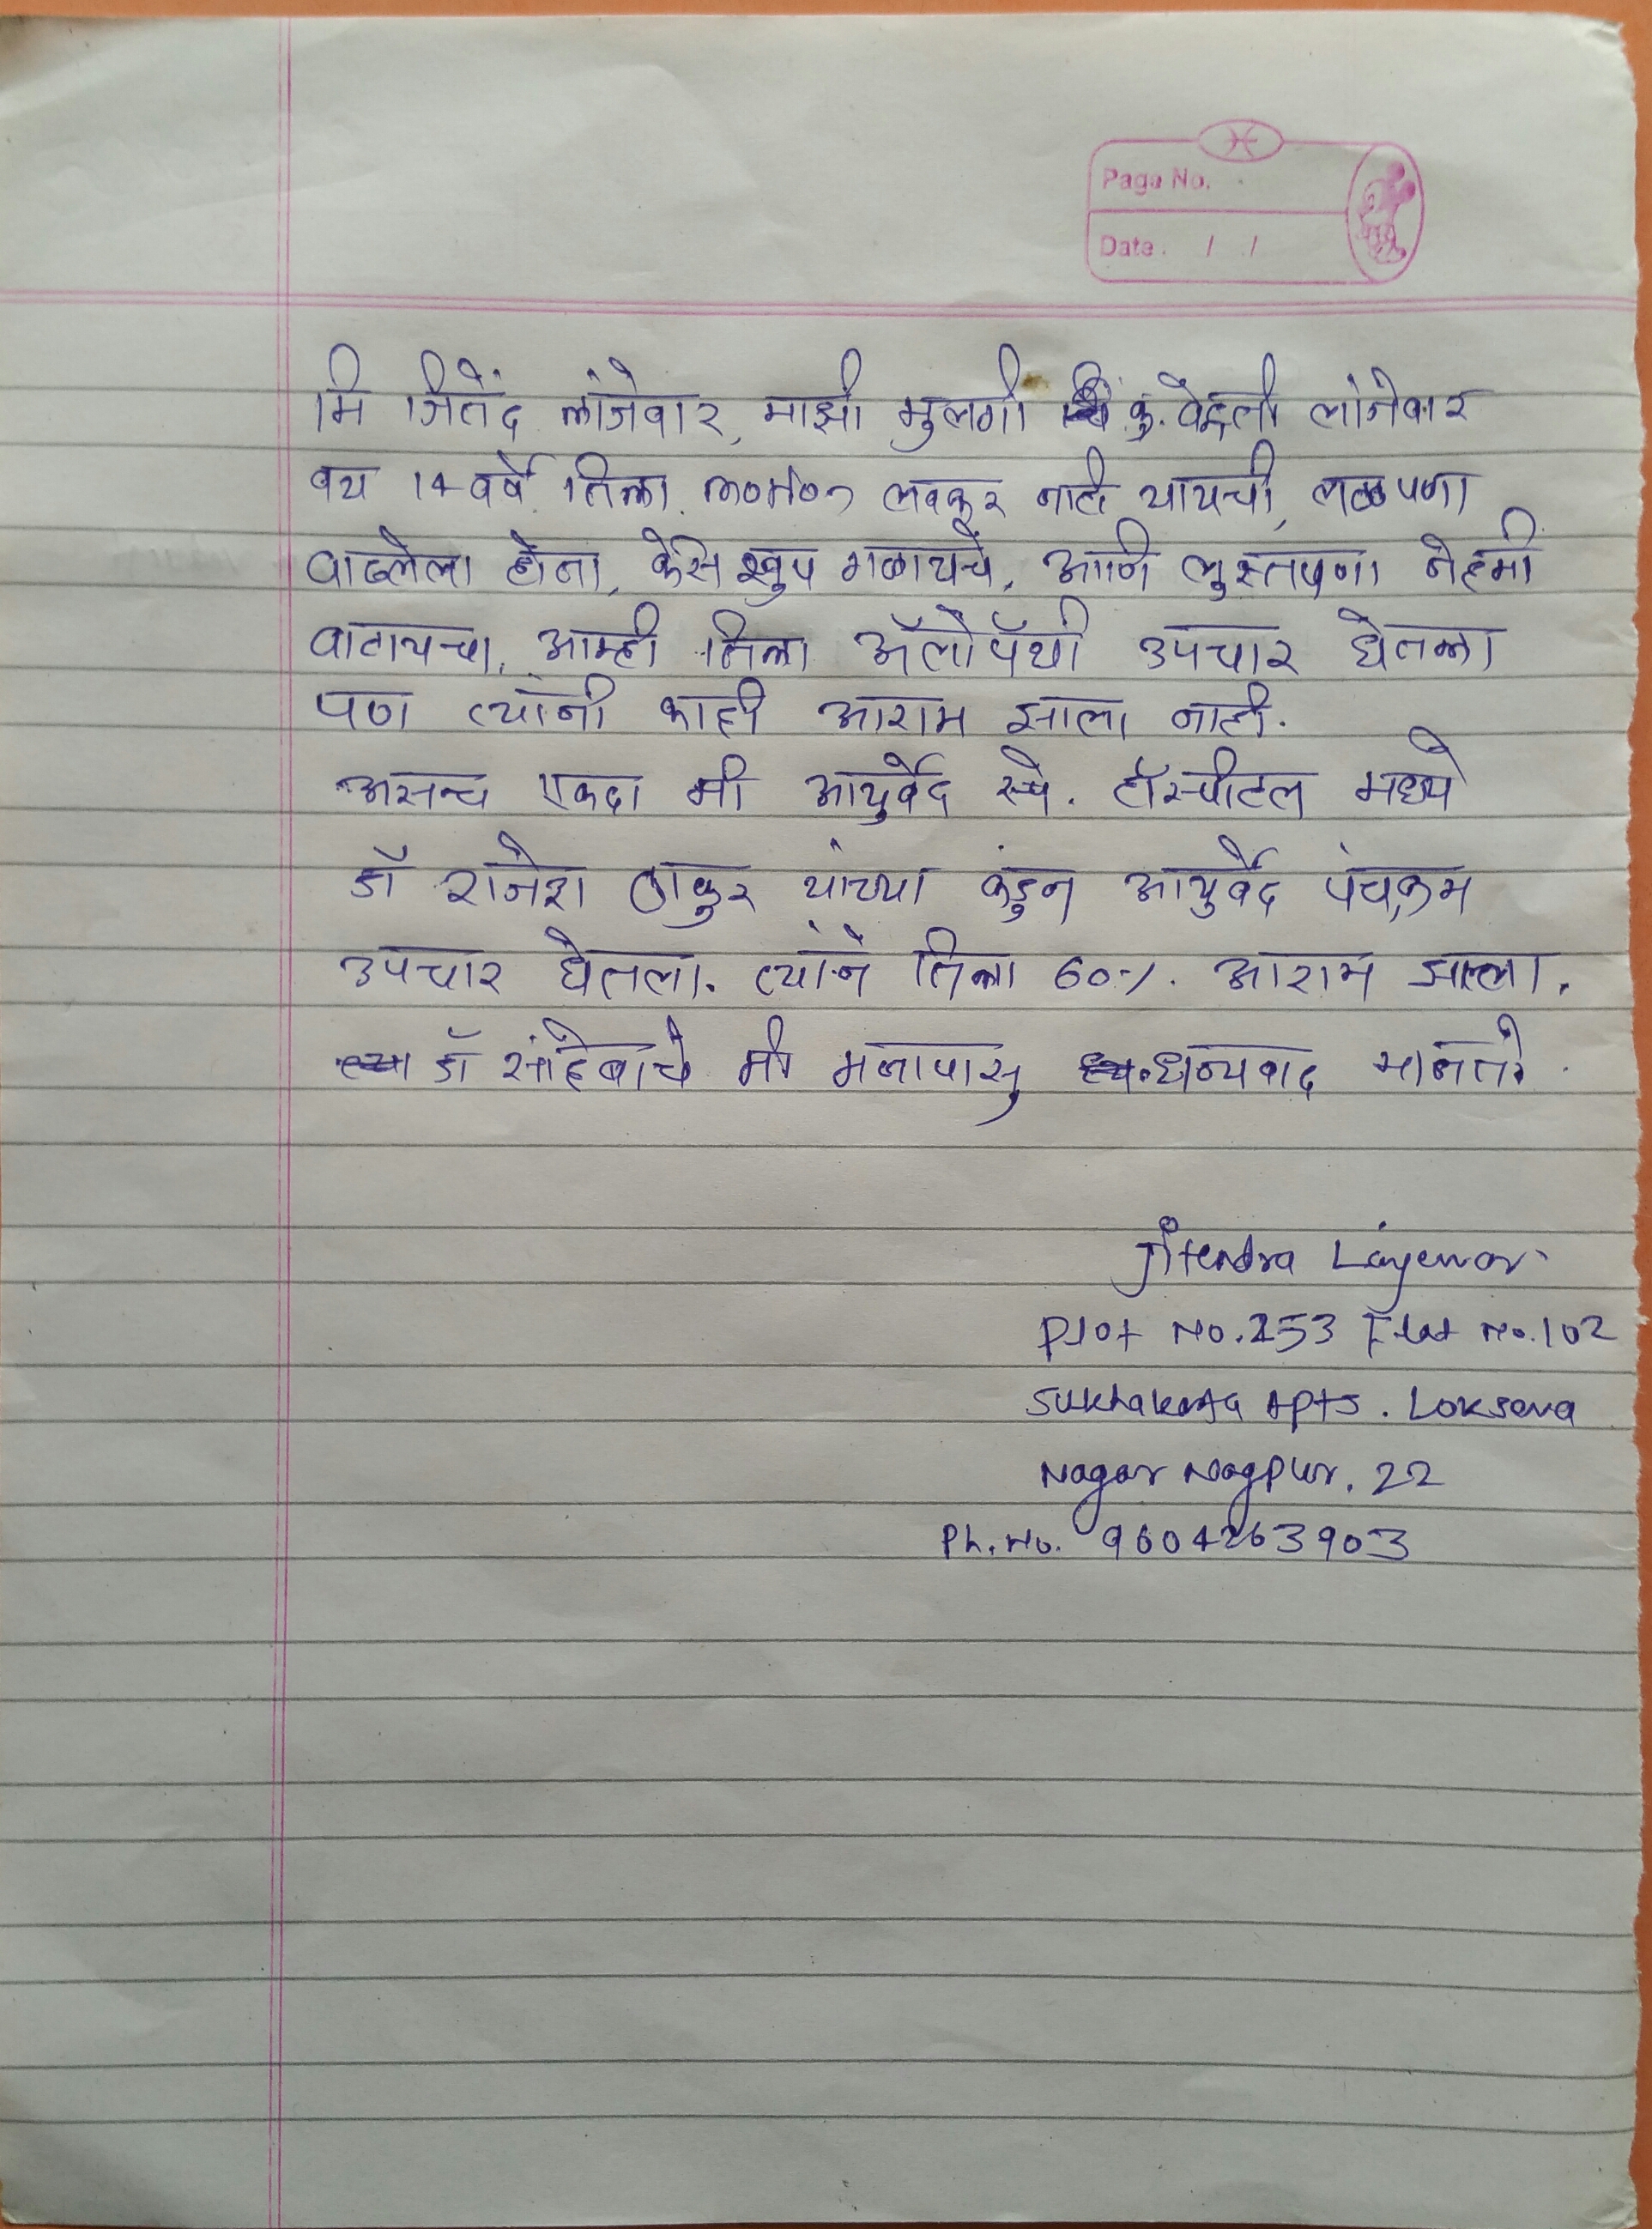 Page No.
Date. / /
मि जितेंद्र लांजेवार, माझी मुलगी कु. वेदांती लांजेवार
वय 14 वर्षे तिला motion लवकर नाही यायची, लठ्ठपणा
वाढलेला होता, केस खुप गळायचे, आणि सुस्तपणा नेहमी
वाटायचा, आम्ही तिला ॲलोपॅथी उपचार घेतला
पण त्यांनी काही आराम झाला नाही.
असच एकदा मी आयुर्वेद स्पे. हॉस्पीटल मध्ये
डॉ राजेश ठाकुर यांच्या कडुन आयुर्वेद पंचकर्म
उपचार घेतला. त्यांने तिला 60%. आराम झाला.
डॉ साहेबांचे मी मनापासु धन्यवाद मानतो.
Jitendra Lanjewar
Plot No. 253 Flat No. 102
Sukhakarta Apts. Lokseva
Nagar Nagpur. 22
Ph. No. 9604263903